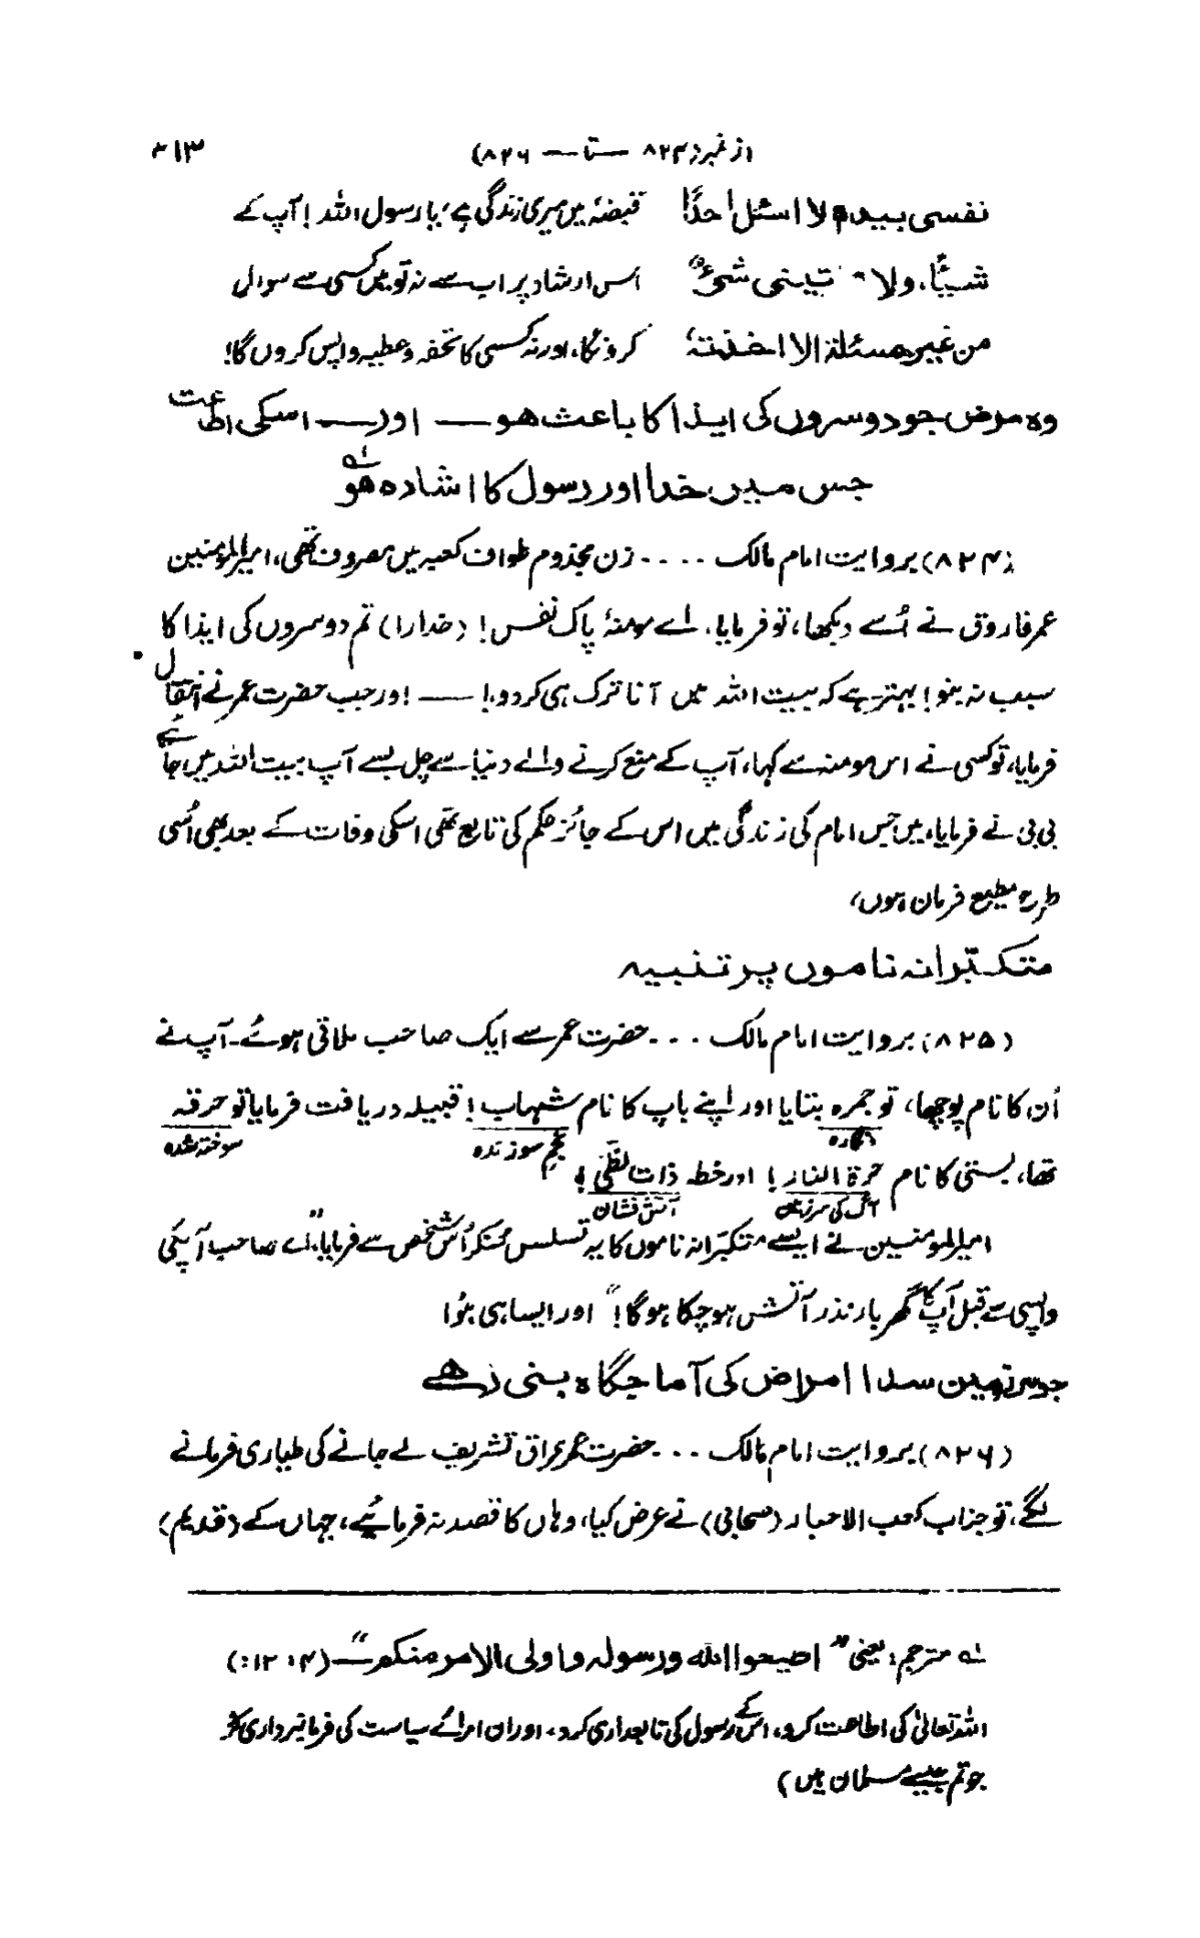 (از نمبر ۸۲۴ — تا — ۸۲۶) ۳۱۳
نفسی بیدہ لا اسئل احدًا قبضہٴ میں میری زندگی ہے، یا رسول اللہ! آپ کے
شیئًا، ولا تینی شیٌٔ اس ارشاد پر اب سے نہ تو میں کسی سے سوال
من غیر مسئلة الا اخذتہٗ کروں گا، اور نہ کسی کا تحفہ و عطیہ واپس کروں گا!
وہ مرض جو دوسروں کی ایذا کا باعث ھو — اور — اسکی اطاعت
جس میں خدا اور رسول کا اشادہ ھو ؎۱
(۸۲۴) بروایت امام مالک .... زن مجذوم طواف کعبہ میں مصروف تھی، امیر المومنین
عمر فاروق نے اُسے دیکھا، تو فرمایا۔ اے مومنہٴ پاک نفس! (خدارا) تم دوسروں کی ایذا کا
سبب نہ بنو! بہتر ہے کہ بیت اللہ میں آنا ترک ہی کر دو! — اور جب حضرت عمر نے انتقال
فرمایا، تو کسی نے اس مومنہ سے کہا، آپ کے منع کرنے والے دنیا سے چل بسے آپ بیت اللہ میں جائیے
بی بی نے فرمایا، میں جس امام کی زندگی میں اس کے جائز حکم کی تابع تھی اسکی وفات کے بعد بھی اُسی
طرح مطیع فرمان ہوں،
متکبّرانہ ناموں پر تنبیہ
(۸۲۵) بروایت امام مالک ... حضرت عمر سے ایک صاحب ملاقی ہوئے۔ آپ نے
اُن کا نام پوچھا، تو جمرہ بتایا اور اپنے باپ کا نام شہاب! قبیلہ دریافت فرمایا تو حرقہ
انگارہ نجم سوزندہ سوختہ شدہ
تھا، بستی کا نام حرۃ النار! اور خطہ ذات لظیٰ!
آگ کی سرزمین آتش فشان
امیر المومنین نے ایسے متکبّرانہ ناموں کا یہ تسلسل سنکر اُس شخص سے فرمایا، "اے صاحب! آپکی
واپسی سے قبل آپ کا گھر بار نذر آتش ہو چکا ہوگا!" اور ایسا ہی ہُوا
جو سرزمین سدا امراض کی آماجگاہ بنی رھے
(۸۲۶) بروایت امام مالک ... حضرت عمر عراق تشریف لے جانے کی طیاری فرمانے
لگے، تو جناب کعب الاحبار (صحابی) نے عرض کیا، وہاں کا قصد نہ فرمائیے، جہاں کے (قدیم)
؎۱ مترجم: یعنی "اطیعوا اللہ ورسولہ واولی الامر منکم" (۱۲:۴:)
اللہ تعالیٰ کی اطاعت کرو، اس کے رسول کی تابعداری کرو، اور ان امرائے سیاست کی فرمانبرداری کرو
جو تم جیسے مسلمان ہیں)